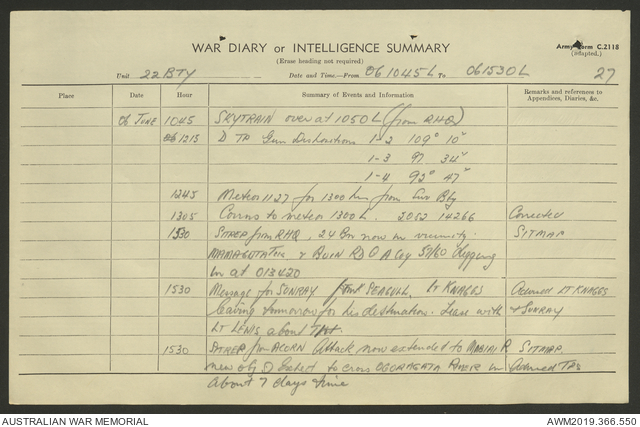 WAR DIARY or INTELLIGENCE SUMMARY
Army Form C.2118
(adapted.)
(Erase heading not required)
Unit 22 BTY Date and Time.—From 061045L To 061530L 27
Place Date Hour Summary of Events and Information Remarks and references to Appendices, Diaries, &c.
06 June 1045 SKYTRAIN over at 1050L (from RHQ)
1215 D TP Gun 1-2 109° 10"
1-3 97 34"
1-4 92° 47"
1245 Meteor 1127 for 1300 hrs from Svy Bty
1305 Corrns to meteor 1300L. 2082 14266 Corrected
1530 SITREP from RHQ. 24 Bn now in vicinity. SITMAP
& BUIN RD A Coy 58/60 digging
in at 013420
1530 Message for SUNRAY from SEAGULL. Lt KNAGGS Advised LT KNAGGS
leaving tomorrow for his destination. with & SUNRAY
LT LEWIS about
1530 SITREP from ACORN Attack now extended to R SITMAP.
new obj Expect to cross RIVER in Advised TPS
about 7 days time
AUSTRALIAN WAR MEMORIAL AWM2019.366.550